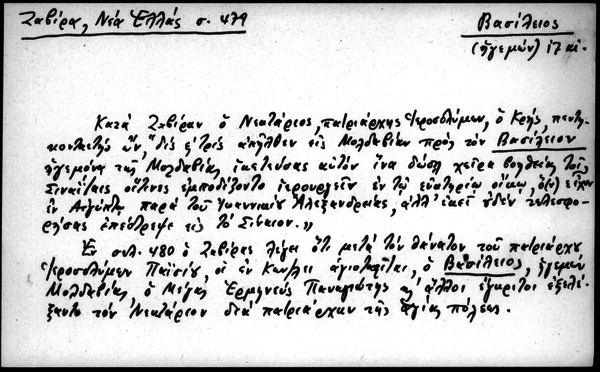 Ζαβίρα, Νέα Ἑλλάς σ. 479
Βασίλειος
(ἡγεμών) 17 αἰ.
Κατά Ζαβίραν ὁ Νεκτάριος, πατριάρχης Ἱεροσολύμων, ὁ Κρής, πεντη-
κοντα ὤν, "δίς ἐ τρίς ἀπῆλθεν εἰς Μολδαβίαν πρός τόν Βασίλειον
ἡγεμόνα τῆς Μολδαβίας ἱκετεύσας αὐτόν ἵνα δώσῃ χεῖρα βοηθείας τοῖς
Σιναΐταις οἵτινες ἐμποδίζοντο ἱερουργεῖν ἐν τῷ εὐκτηρίῳ οἴκῳ, ὅ(ν) εἶχον
ἐν Αἰγύπτῳ παρά τοῦ Ἰωαννικίου Ἀλεξανδρείας, ἀλλ' ἐκεῖ οὐδέν τελεσφο-
ρήσας ἐπέστρεψε εἰς τό Σίναιον."
Ἐν σελ. 480 ὁ Ζαβίρας λέγει ὅτι μετά τόν θάνατον τοῦ πατριάρχου
Ἱεροσολύμων Παϊσίου, οἱ ἐν Κων/λει ἁγιοταφῖται, ὁ Βασίλειος, ἡγεμών
Μολδαβίας, ὁ Μέγας Ἑρμηνεύς Παναγιώτης κ' ἄλλοι ἔγκριτοι ἐξελέ-
ξαντο τόν Νεκτάριον διά πατριάρχην τῆς ἁγίας πόλεως.